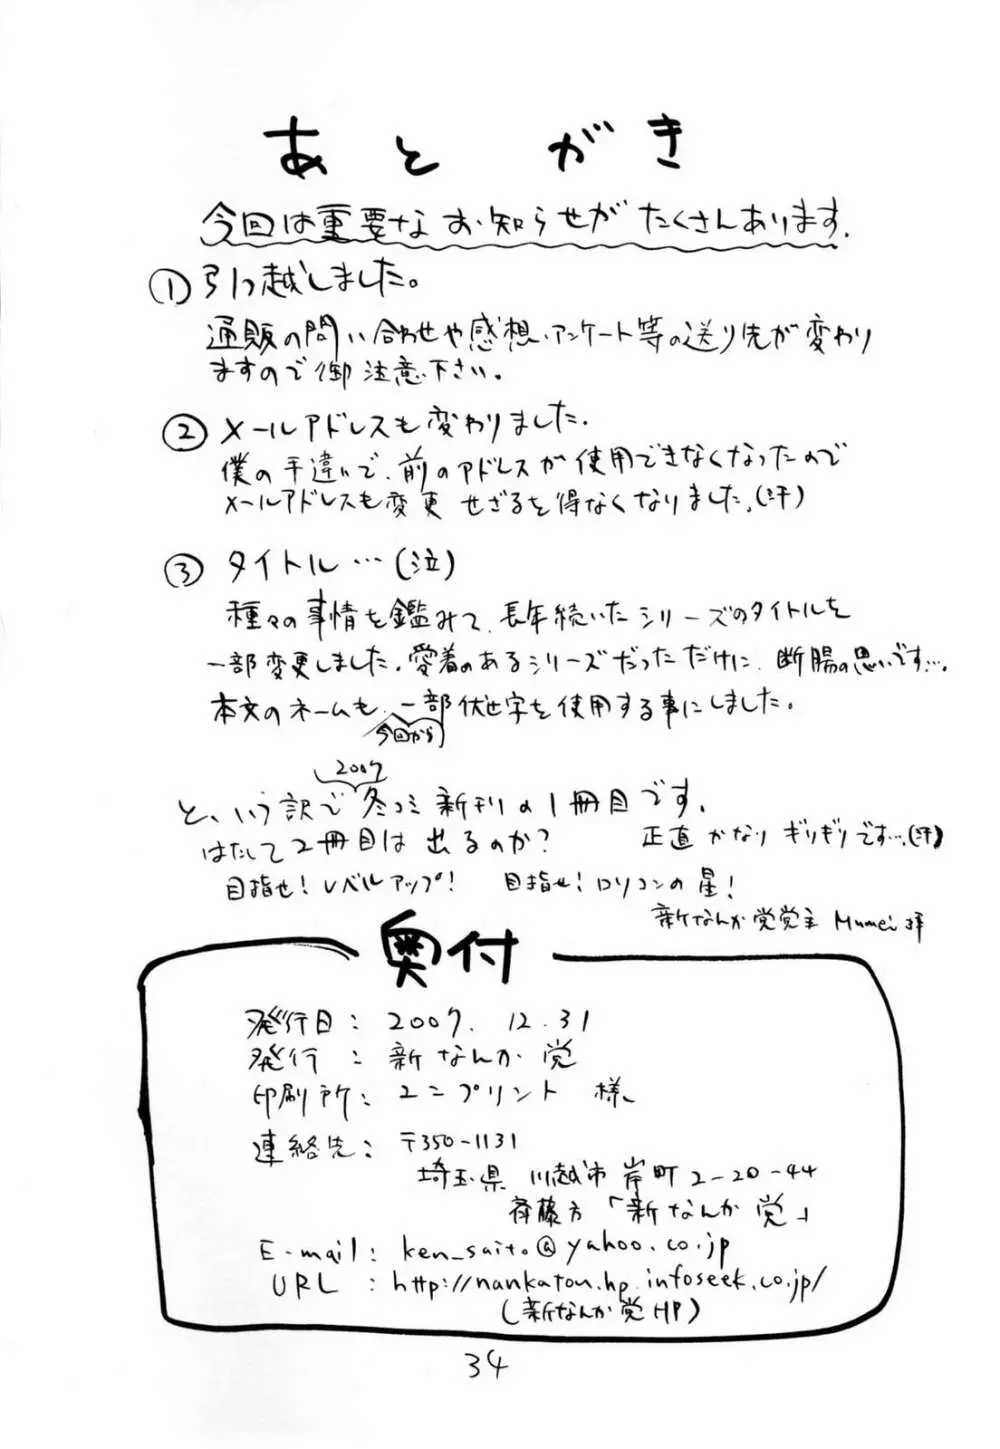 あとがき
今回は重要なお知らせがたくさんあります.
① 引っ越しました。
通販の問い合わせや感想、アンケート等の送り先が変わり
ますので御注意下さい。
② メールアドレスも変わりました.
僕の手違いで、前のアドレスが使用できなくなったので
メールアドレスも変更せざるを得なくなりました。(汗)
③ タイトル…(泣)
種々の事情を鑑みて、長年続いたシリーズのタイトルを
一部変更しました。愛着のあるシリーズだっただけに、断腸の思いです…。
本文のネームも、一部伏せ字を使用する事にしました。
今回から
2007
と、いう訳で冬コミ新刊の1冊目です。
はたして2冊目は出るのか? 正直かなりギリギリです…。(汗)
目指せ!レベルアップ! 目指せ!ロリコンの星!
新なんか党党主 Mumei 拝
奥付
発行日: 2007. 12. 31
発行: 新なんか党
印刷所: ユニプリント 様
連絡先: 〒350-1131
埼玉県 川越市 岸町 2-20-44
斉藤方「新なんか党」
E-mail: ken_saito@yahoo.co.jp
URL : http://nankatou.hp.infoseek.co.jp/
(新なんか党HP)
34